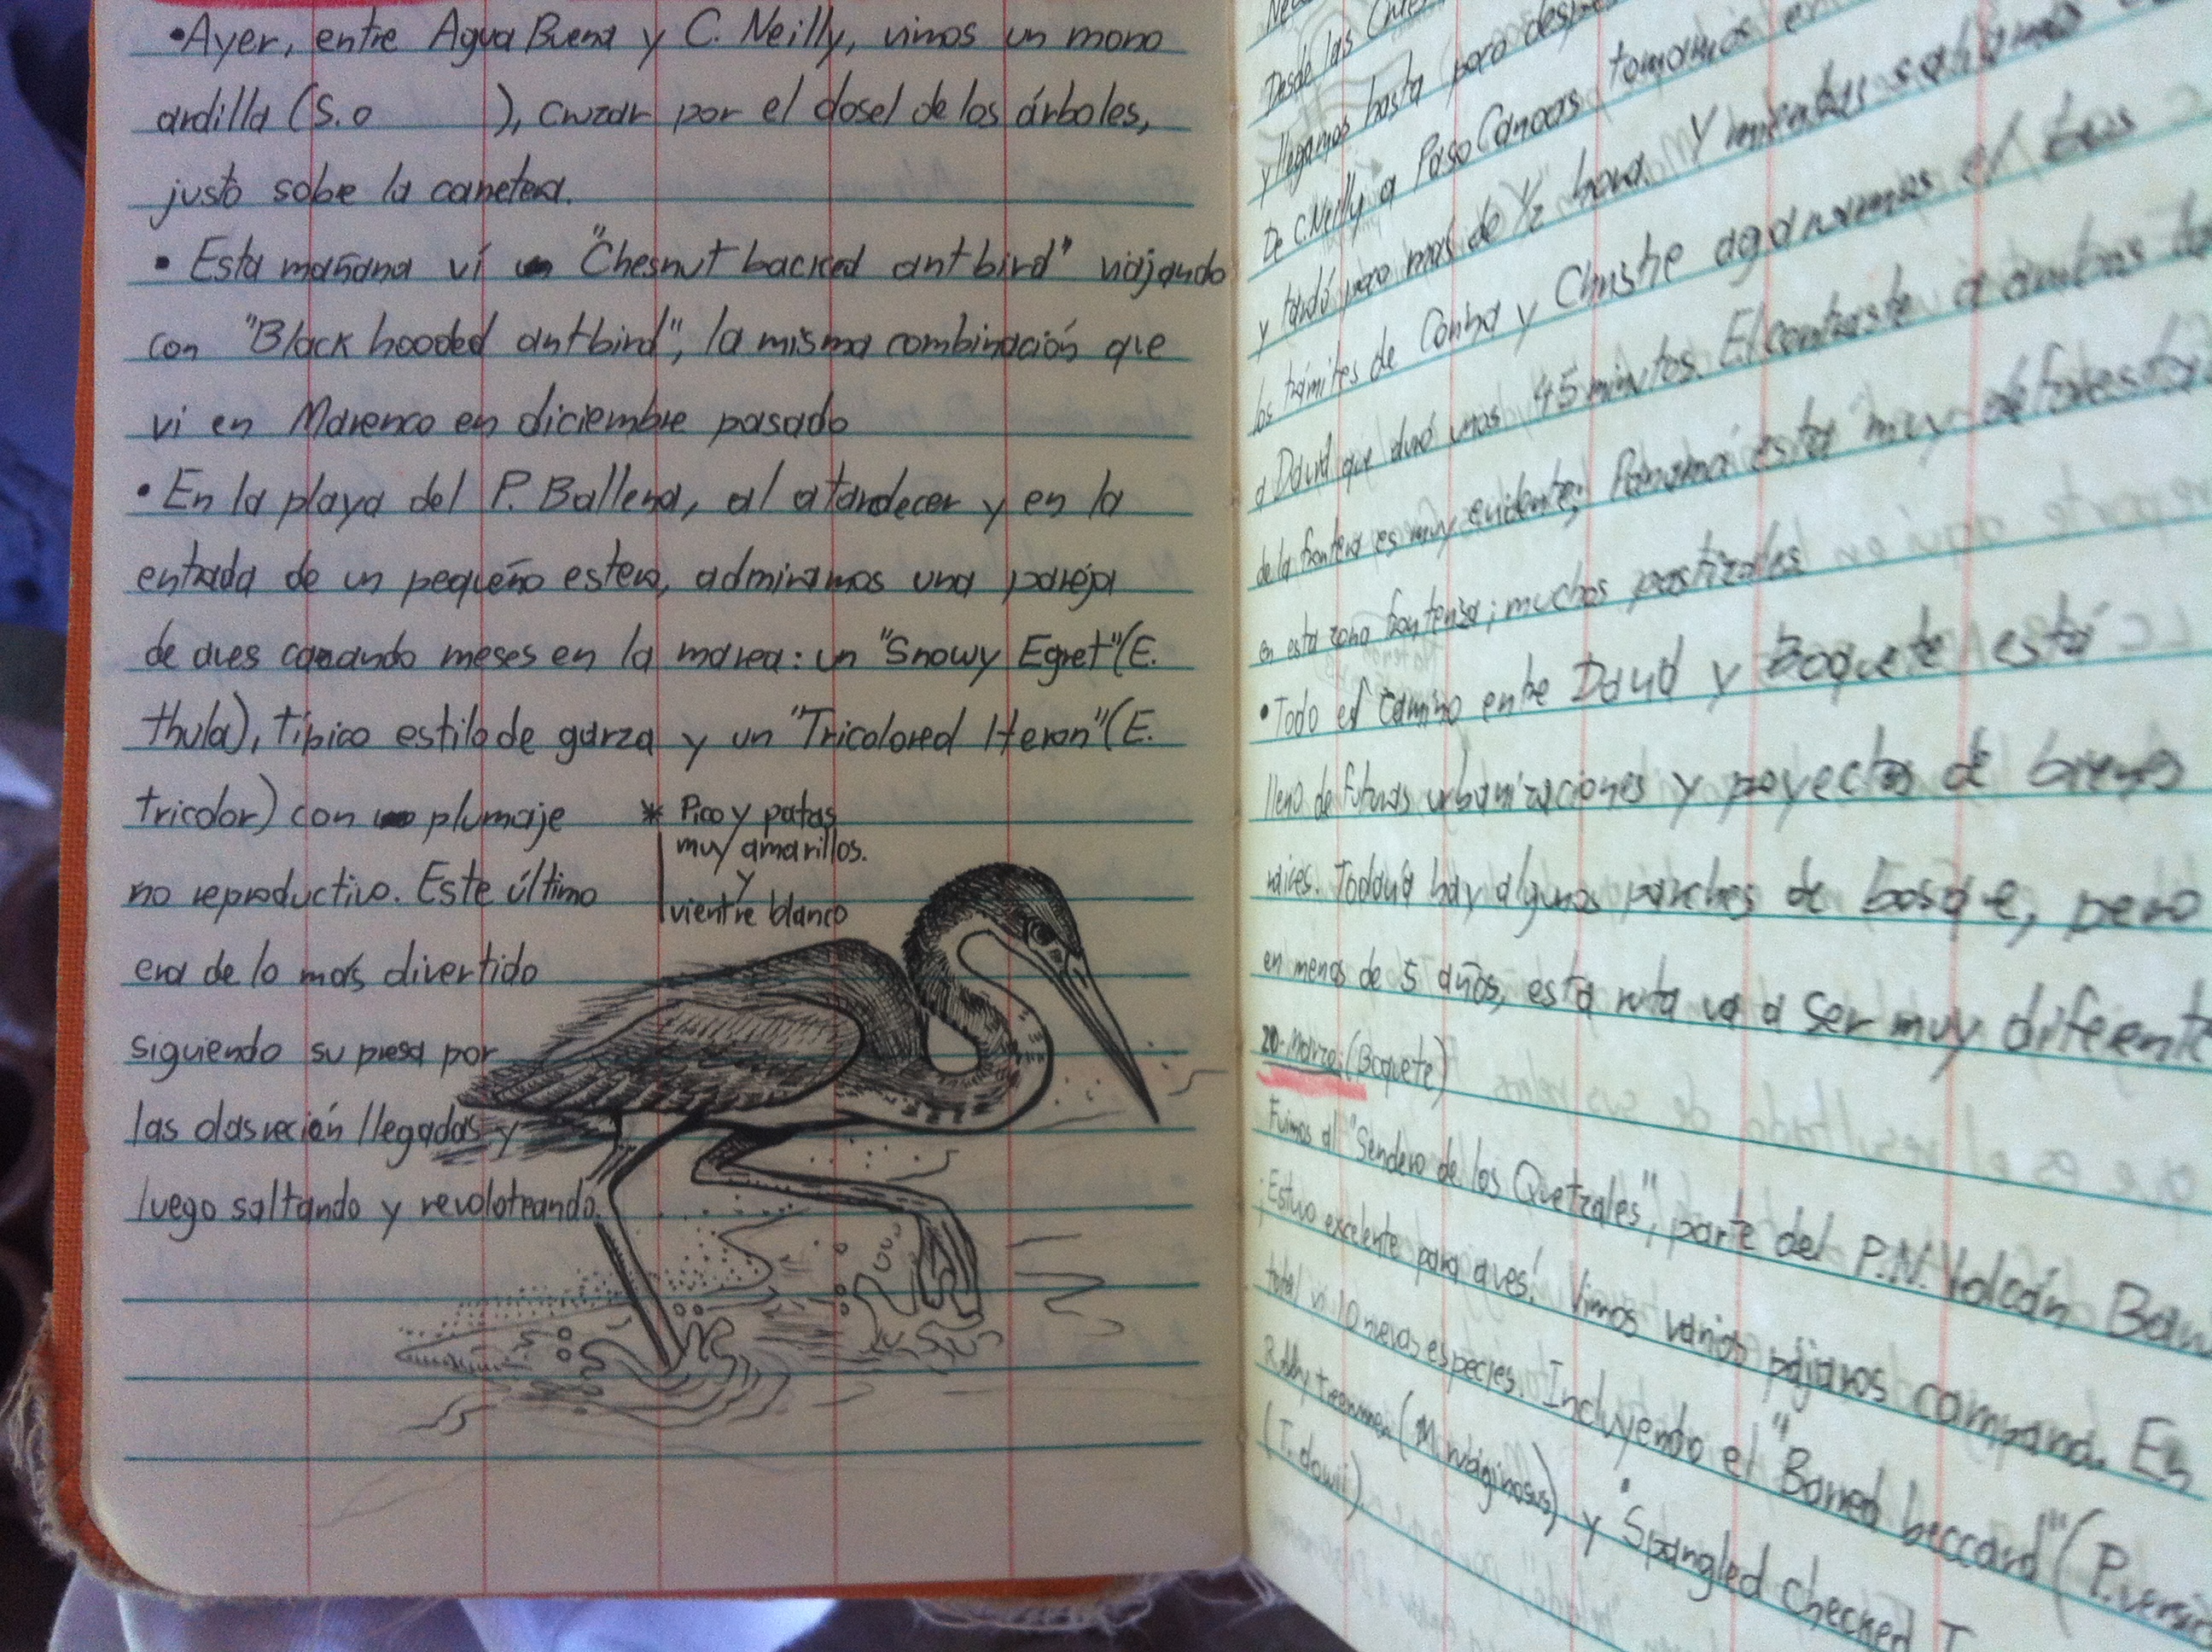 •Ayer, entre Agua Buena y C. Neilly, vimos un mono
ardilla (S.o ), cruzar por el dosel de los árboles,
justo sobe la carretera.
• Esta mañana ví un "Chesnut backed antbird" viajando
con "Black hooded antbird", la misma combinación que
vi en Marenco en diciembre pasado
• En la playa del P. Ballena, al atardecer y en la
entrada de un pequeño estero, admiramos una pareja
de aves meses en la marea: un "Snowy Egret" (E.
thula), típico estilo de garza y un "Tricolored Heron" (E.
tricolor) con plumaje
no reproductivo. Este último
era de lo más divertido
siguiendo su presa por
las olas recién llegadas y
luego saltando y revoloteando.
* Pico y patas
muy amarillos.
y
vientre blanco
Desde las
y llegamos hasta para
De C. Neilly a Paso Canoas, tomamos
y tardó poco mas de 1/2 hora. Y mientras salíamos
los trámites de Conha y Chushe agarramos el bus
a David que duró unos 45 minutos. El contraste a ambos
de la frontera es muy evidente; Panamá está muy
en esta zona fronteriza; muchos pastizales
• Todo el camino entre David y Boquete está
lleno de futuras urbanizaciones y proyectos de bienes
raíces. Todavía hay algunos parches de bosque, pero
en menos de 5 años, esta ruta va a ser muy diferente
20-Marzo: (Boquete)
Fuimos al "Sendero de los Quetzales", parte del P.N. Volcán
¡Estuvo excelente para aves! Vimos varios pájaros campana. En
total vi 10 nuevas especies. Incluyendo el "Barred beccard" (P.
Ruddy treerunner (M. rubiginosus) y "Spangled cheeked T
(T. dowii)